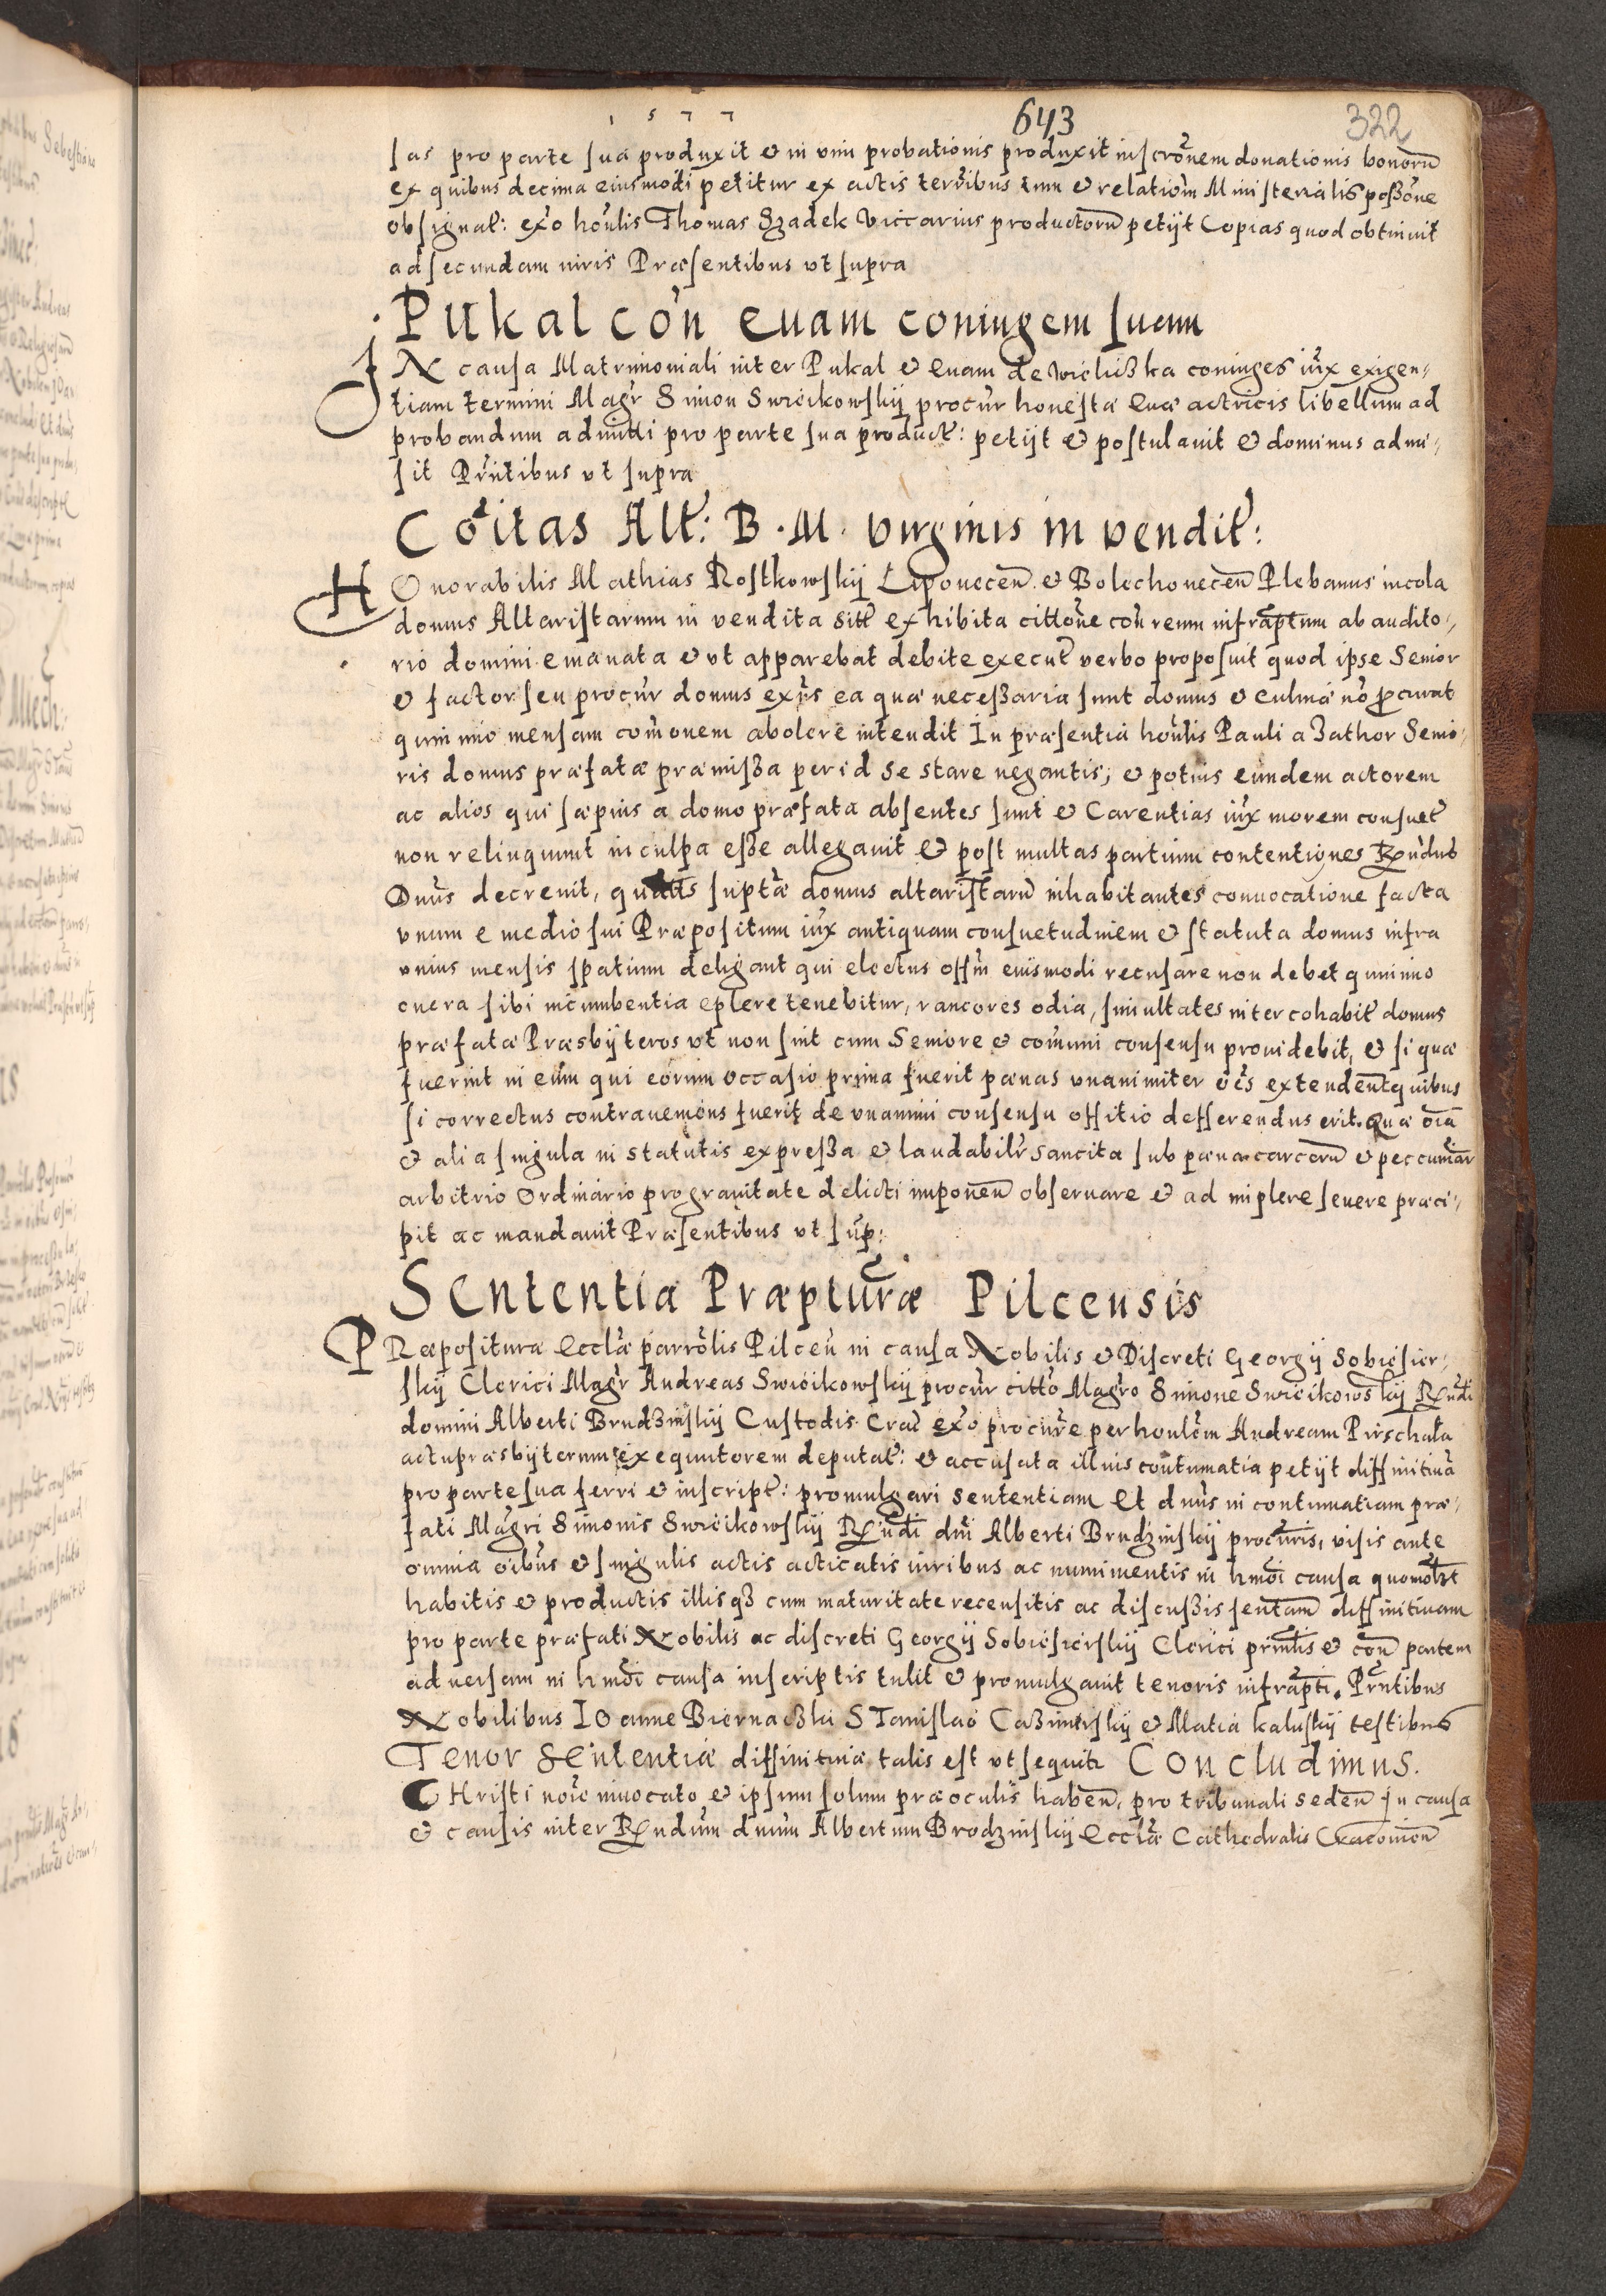 1577 643 322
sas pro parte sua produxit et in vim probationis produxit inscrōnem donationis bonorū
ex quibus decima eiusmodi petitur ex actis terribus tum et relatiōm Ministerialis poßōne
obsignat: exo honlis Thomas Szadek Viccarius productorū petijt Copias quod obtinuit
ad secundam iuris Præsentibus ut supra
Pukal cōn Euam coniugem suam
IN causa Matrimoniali inter Pukal et Euam de Wieliczka coniuges iux exigen-
tiam termini Magr Simon Swieikowskij procur honestæ Euæ actricis libellum ad
probandum admitti pro parte sua product: petijt et postulauit et dominus admi-
sit Prntibus ut supra
Coitas Alt: B. M. virginis in vendit:
HOnorabilis Mathias Rostkowskij Lipouecen et Bolechouecen Plebanus incola
domus Altaristarum in vendita sitt exhibita cittone con reum infraptum ab audito-
rio domini emanata et ut apparebat debite execut verbo proposuit quod ipse Senior
et factor seu procur domus exijs ea quæ neceßaria sunt domus et culinæ no procurat
quin imo mensam comonem abolere intendit In præsentia honlis Pauli a Zathor Senio-
ris domus præfatæ præmißa per id se stare negantis, et potius eundem actorem
ac alios qui sæpius a domo præfata absentes sunt et Carentias iux morem consuet
non relinquunt in culpa eße allegauit et post multas partium contentiones Rndus
Dnus decreuit, quatts suptæ domus altaristarū inhabitantes conuocatione facta
vnum e medio sui Præpositum iux antiquam consuetudinem et statuta domus infra
vnius mensis spatium deligant qui electus offm euismodi recusare non debet quin imo
onera sibi incumbentia eplere tenebitur, rancores odia, simultates inter cohabit domus
præfatæ Præsbijteros vt non sint cum Seniore et comuni consensu prouidebit, et si quæ
fuerint in eum qui eorum occasio prima fuerit pœnas vnanimiter oēs extendent quibus
si correctus contraueniens fuerit de vnanimi consensu offitio defferendus erit. Quæ oīa
et alia singula in statutis expreßa et laudabilr sancita sub pœna carcerū et peccuniar
arbitrio Ordinario pro grauitate delicti imponen obseruare et ad implere seuere præci-
pit ac mandauit Præsentibus vt sup:
Sententia Præpturæ Pilcensis
PRæpositura Ecclæ parrolis Pilcen in causa Nobilis et Discreti Georgij Sobiesier-
skij Clerici Magr Andreas Swieikowskij procur citto Magro Simone Swieikowskij Rndi
domini Alberti Brudzinskij Custodis Crac exo procure per honlem Andream Pirschała
actu præsbijterum exequutorem deputat: et accusata illius contumatia petijt diffinitiuā
pro parte sua ferri et inscript: promulgari sententiam Et dnus in contumatiam præ-
fati Magri Simonis Swieikowskij Rndi dni Alberti Brudzinskij procuris, visis ante
omnia oibus et singulis actis acticatis iuribus ac munimentis in hmoi causa quomolzt
habitis et productis illisqz cum maturitate recensitis ac discußis sentam diffinitiuam
pro parte præfati Nobilis ac discreti Georgij Sobiesierskij Clerici prinlis et con partem
aduersam in hmoi causa inscriptis tulit et promulgauit tenoris infrapti. Prntibus
Nobilibus Ioanne Biernaczki Stanislao Cazimirskij et Matia kaluskij testibus
Tenor Sententiæ diffinitiuæ talis est vt sequitr Concludimus.
CHristi noīe inuocato et ipsum solum præ oculis haben, pro tribunali seden In causa
et causis inter Rndum dnum Albertum Brodzinskij Ecclæ Cathedralis Cracouien